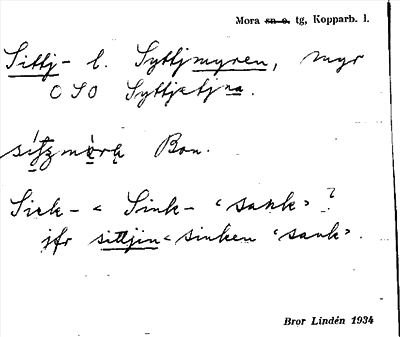 Mora sn o. tg, Kopparb. l.
Sittj- l. Syttjmyren, myr
OSO Syttjetjna.
Bon.
Sick- < Sink- 'sank'?
jfr sittjin < sinken 'sank'.
Bror Lindén 1934